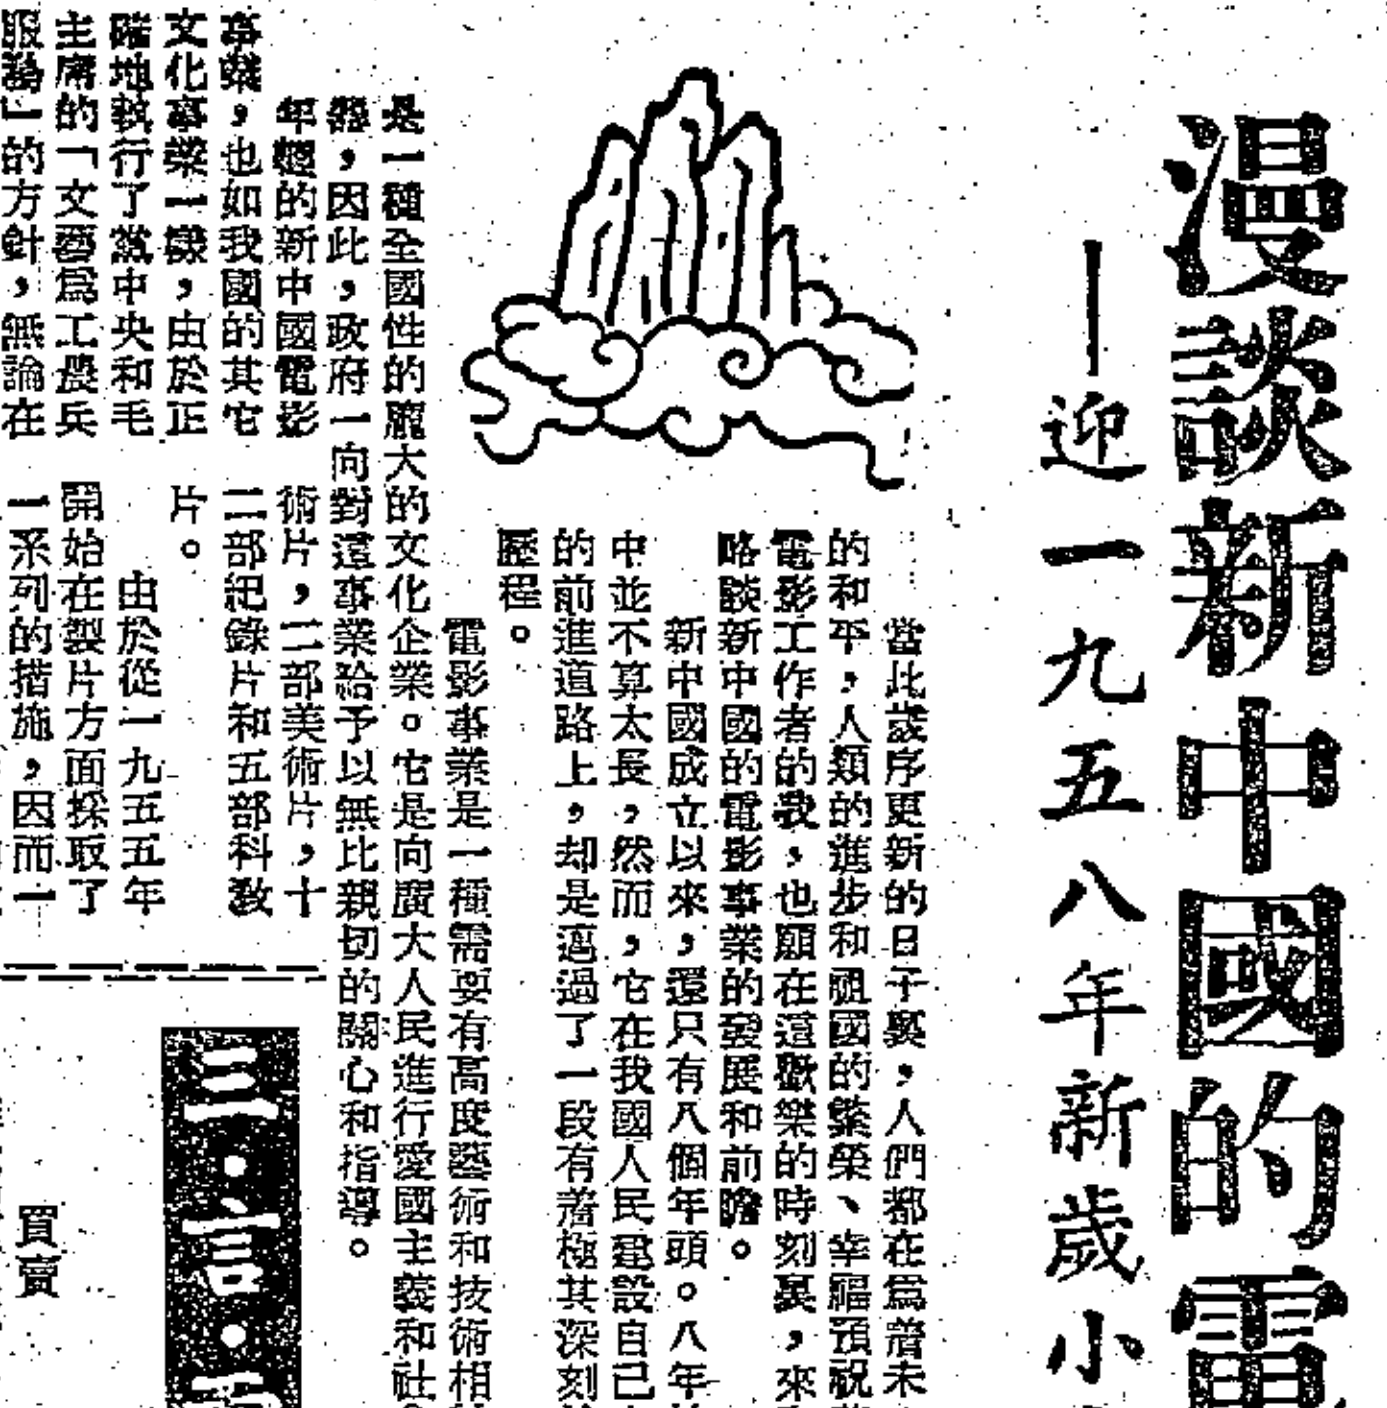 漫談新中國的電
——迎一九五八年新歲小
當此歲序更新的日子裏，人們都在爲着未
的和平，人類的進步和祖國的繁榮、幸福預祝
電影工作者的我，也願在這歡樂的時刻裏，來
略談新中國的電影事業的發展和前瞻。
新中國成立以來，還只有八個年頭。八年
中並不算太長，然而，它在我國人民建設自己
的前進道路上，却是邁過了一段有着極其深刻
歷程。
電影事業是一種需要有高度藝術和技術相
是一種全國性的龐大的文化企業。它是向廣大人民進行愛國主義和社
器，因此，政府一向對這事業給予以無比親切的關心和指導。
年輕的新中國電影
事業，也如我國的其它
文化事業一樣，由於正
確地執行了黨中央和毛
主席的「文藝爲工農兵
服務」的方針，無論在
術片，二部美術片，十
二部紀錄片和五部科教
片。
由於從一九五五年
開始在製片方面採取了
一系列的措施，因而一
三·言·
買賣